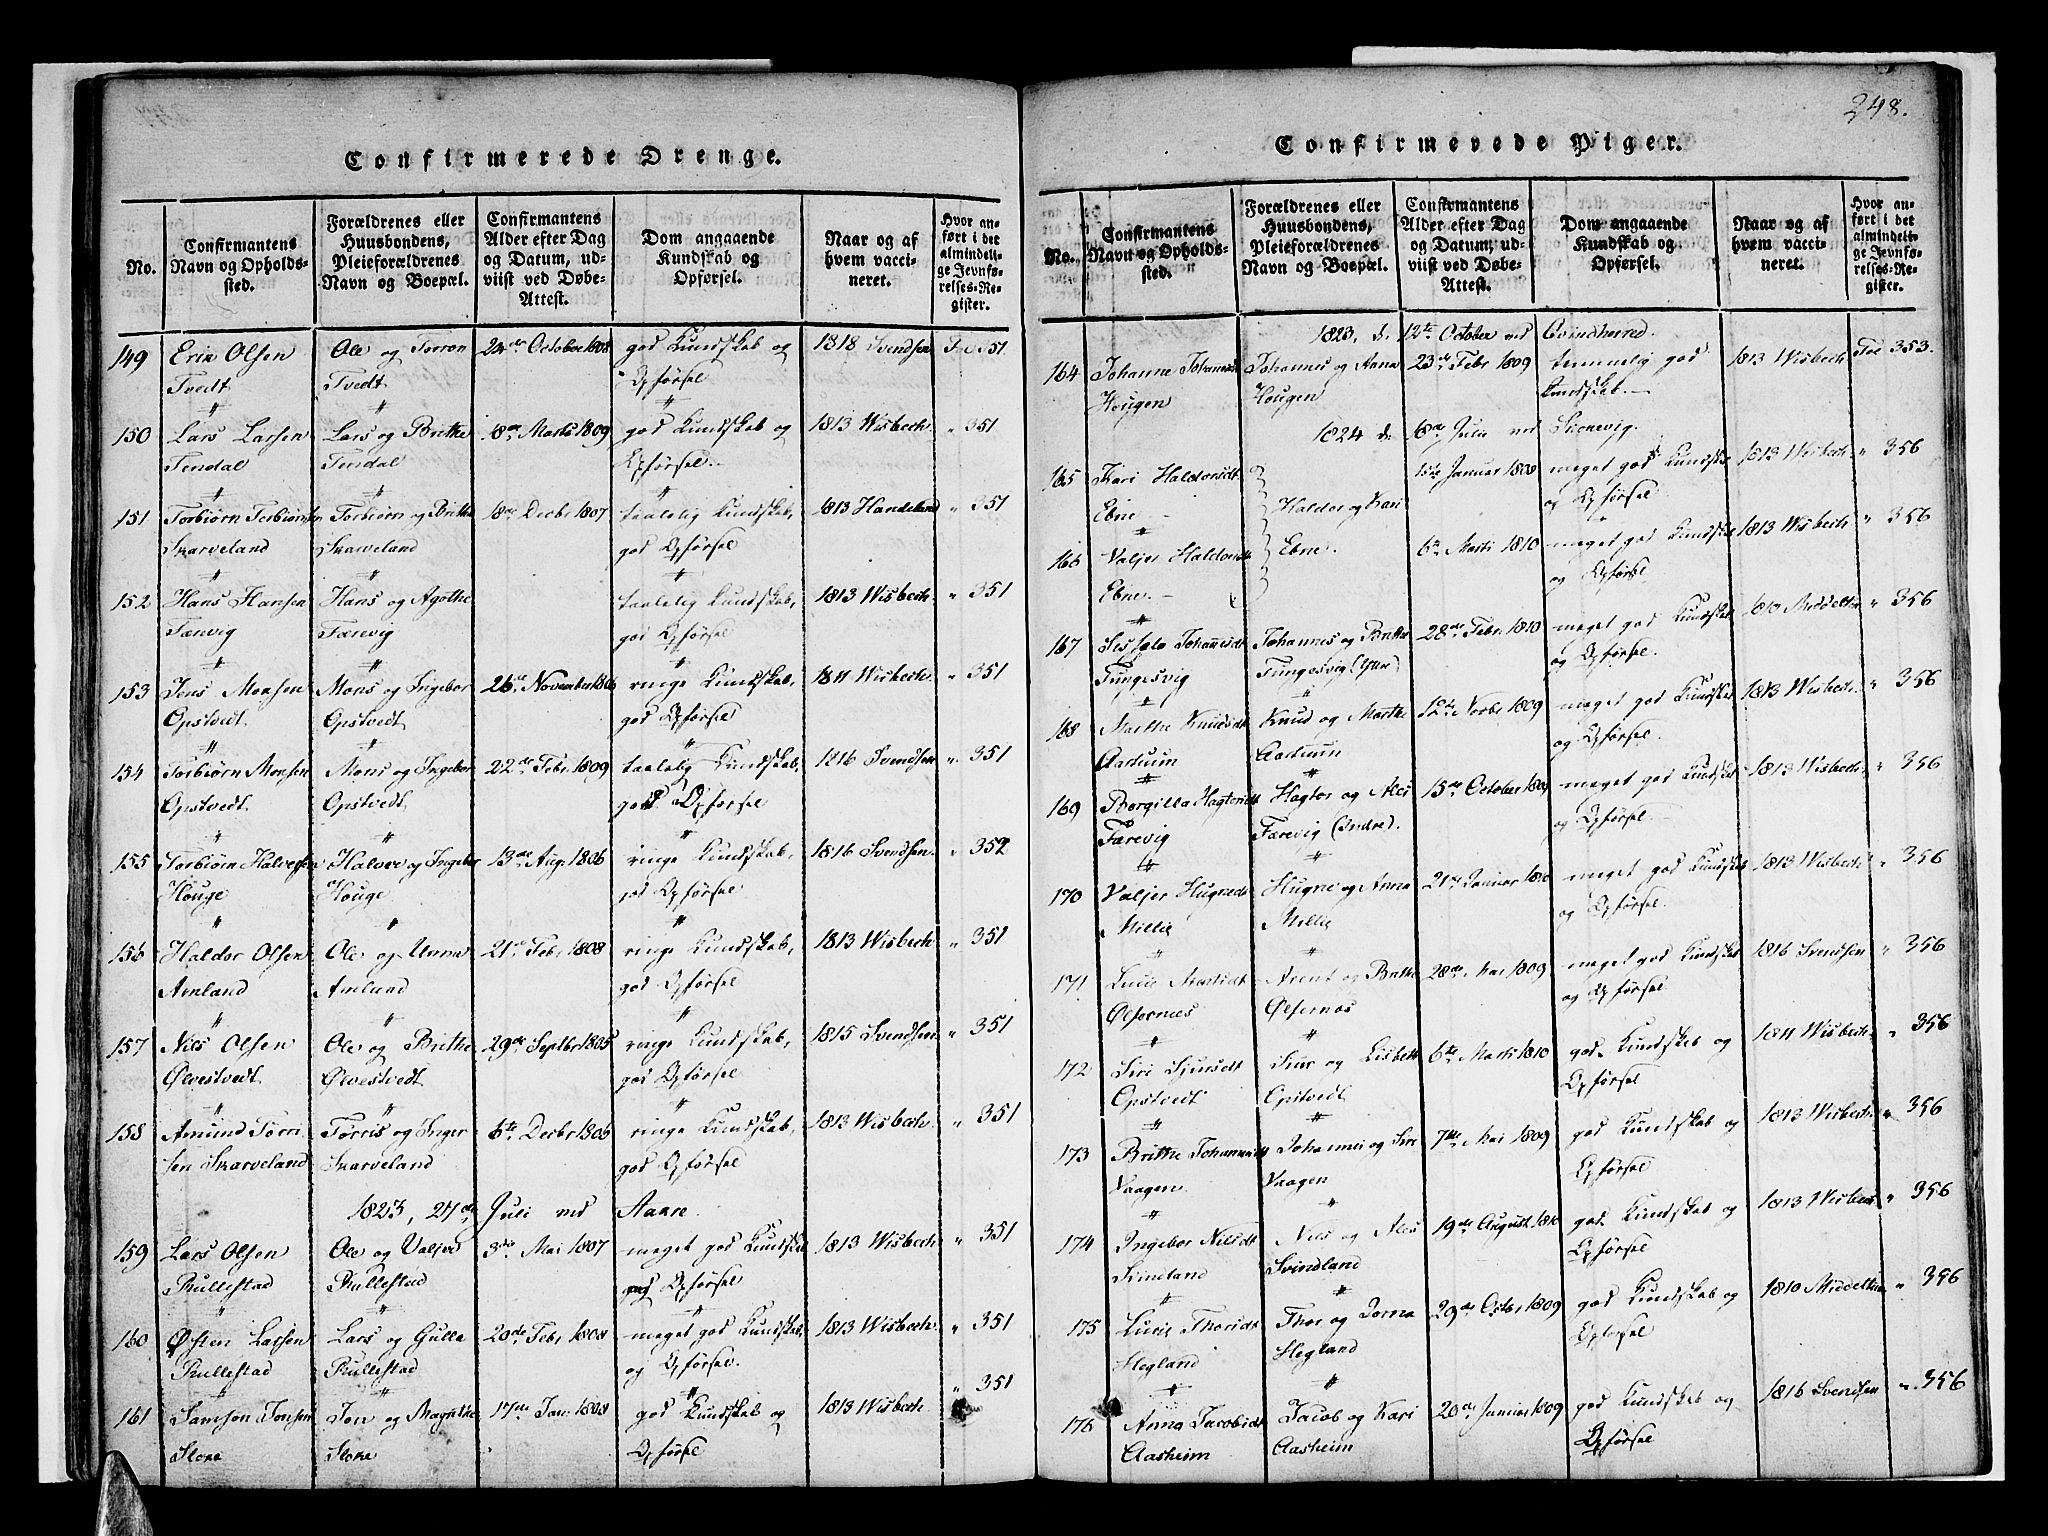 248.
Confirmerede Drenge.
No.
Confirmantens Navn og Opholdssted.
Forældrenes eller Huusbondens, Pleieforældrenes Navn og Boepæl.
Confirmantens Alder efter Dag og Datum, udviist ved Døbe-Attest.
Dom angaaende Kundskab og Opførsel.
Naar og af hvem vaccineret.
Hvor anført i det almindelige Jevnførelses-Register.
149 Erik Olsen Ole og Torron 24de October 1808 god Kundskab og 1818 Svendsen Fol 351
Tvedt Tvedt Opførsel
150 Lars Larsen Lars og Brithe 18de Marts 1809 god Kundskab og 1813 Wisbech " 351
Tindal Tindal Opførsel
151 Torbiørn Torbiørnsen Torbiørn og Brithe 18de Decbr 1807 taalelig Kundskab, 1813 Handeland " 351
Skarveland Skarveland god Opførsel
152 Hans Hansen Hans og Agothe taalelig Kundskab, 1813 Wisbech " 351
Færvig Færvig god Opførsel
153 Jens Monsen Mons og Ingebor 26de November 1806 ringe Kundskab, 1811 Wisbech " 351
Opstvedt Opstvedt god Opførsel
154 Torbiørn Monsen Mons og Ingebor 22de Febr. 1809 taalelig Kundskab, 1816 Svendsen " 351
Opstvedt Opstvedt god Opførsel
155 Torbiørn Halversen Halver og Ingebor 13de Aug. 1806 ringe Kundskab, 1816 Svendsen " 352
Houge Houge god Opførsel
156 Haldor Olsen Ole og Unna 21de Feb. 1808 ringe Kundskab, 1813 Wisbech " 351
Amland Amland god Opførsel
157 Nils Olsen Ole og Brithe 29de Septbr 1805 ringe Kundskab, 1815 Svendsen " 351
Ølvestvedt Ølvestvedt god Opførsel
158 Amund Torri Torris og Inger 6te Decbr 1806 ringe Kundskab, 1813 Wisbech " 351
sen Skarveland Skarveland god Opførsel
1823, 27de Juli ved Aakre
159 Lars Olsen Ole og Valjer 3die Mai 1807 meget god Kundskab 1813 Wisbech " 351
Rullestad Rullestad og Opførsel
160 Østen Larsen Lars og Gulla 20de Febr. 1808 meget god Kundskab 1813 Wisbech " 351
Rullestad Rullestad og Opførsel.
161 Samson Jonsen Jon og Magnthe 17de Jan. 1808 god Kundskab og 1813 Wisbech " 351
Stone Stone Opførsel
Confirmerede Piger.
No.
Confirmantens Navn og Opholdssted.
Forældrenes eller Huusbondens, Pleieforældrenes Navn og Boepæl.
Confirmantens Alder efter Dag og Datum, udviist ved Døbe-Attest.
Dom angaaende Kundskab og Opførsel.
Naar og af hvem vaccineret.
Hvor anført i det almindelige Jevnførelses-Register.
1823, d. 12te October ved Qvindherred.
164 Johanne Johannesdt Johannes og Anna 23de Febr 1809 temmelig god 1813 Wisbech Fol 353.
Hougen Hougen Kundskab.
1824 d. 18de Julii ved Skonevig.
165 Kari Haldorsdt Haldor og Kari Januar 1808 meget god Kundskab 1813 Wisbech " 356
Ebne Ebne. og Opførsel
166 Valjer Haldorsdt 6te Marts 1810 meget god Kundskab 1813 Wisbech " 356
Ebne og Opførsel
167 Sissela Johannesdt Johannes og Brithe 28de Febr. 1810 meget god Kundskab 1810 Middelthun " 356
Tungesvig Tungesvig (Ytre) og Opførsel.
168 Marthe Knudsdt Knud og Marthe 12te Novbr 1809 meget god Kundskab 1813 Wisbech " 356
Aadtuum Aadtuum og Opførsel.
169 Borgilla Hagtorsdt Hagtor og Ales 15de October 1809 meget god Kundskab 1813 Wisbech " 356
Færevig Færevig (Indre). og Opførsel
170 Valjer Hugnedt Hugne og Anna 21de Januar 1810 meget god Kundskab 1813 Wisbech " 356
Millie Millie og Opførsel.
171 Lucie Arentsdt Arent og Brithe 28de Mai 1809 meget god Kundskab 1816 Svendsen " 356
Ølfernæs Ølfernæs og Opførsel
172 Siri Sjursdt Siur og Lisbeth 6te Marts 1810 god Kundskab og 1811 Wisbech " 356
Opstvedt Opstvedt Opførsel
173 Brithe Johannesdt Johannes og Siri 7de Mai 1809 god Kundskab og 1813 Wisbech " 356
Vaagen Vaagen Opførsel
174 Ingebor Nilsdt Niels og Ales 19de August 1810 god Kundskab og 1813 Wisbech " 356
Svindland Svindland Opførsel
175 Lucie Thorsdt Thor og Jorna 29de Octbr 1809 god Kundskab og 1810 Middelthun " 356
Hegland Hegland Opførsel
176 Anna Jacobsdt Jacob og Kari 20de Januar 1809 god Kundskab og 1816 Svendsen " 356
Aasheim Aasheim Opførsel